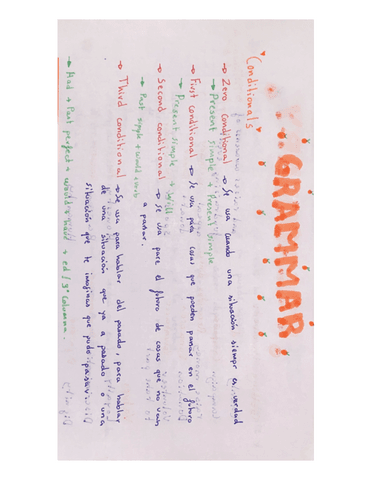 GRAMMAR
Conditional
→ Zero conditional → Se usa cuando una situación siempr es verdad
→ Present simple + Present Simple
→ First conditional → Se usa para cosas que pueden pasar en el futuro
→ Present simple + will
→ Second conditional → Se usa para el futuro de cosas que no van
a pasar.
→ Past simple + would + verb
→ Third conditional → Se usa para hablar del pasado, para hablar
de una situación que ya a pasado o una
situación que te imaginas que pudo pasar
→ Had + Past perfect + would + have + ed / 3ª Columna.